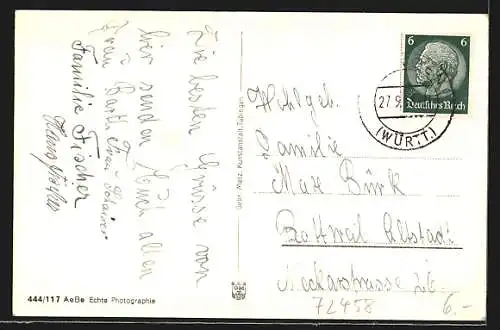 Die besten Grüsse von
hier senden Euch allen
Frau Barth, Frau
Familie Fischer
444/117 AeBe Echte Photographie
Gebr. Metz, Kunstanstalt, Tübingen
GMT
6 6
Deutsches Reich
27.9.
(WÜRTT.)
Wohlgeb.
Familie
Max Bürk
Rottweil Altstadt
Neckarstrasse
72458
6.-